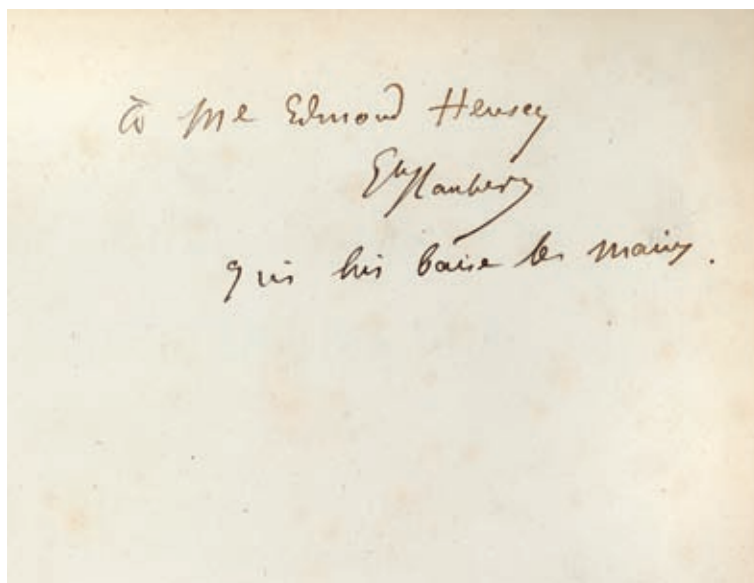 à Me Edmond Heuzey
Gve Flaubert
qui lui baise les mains.